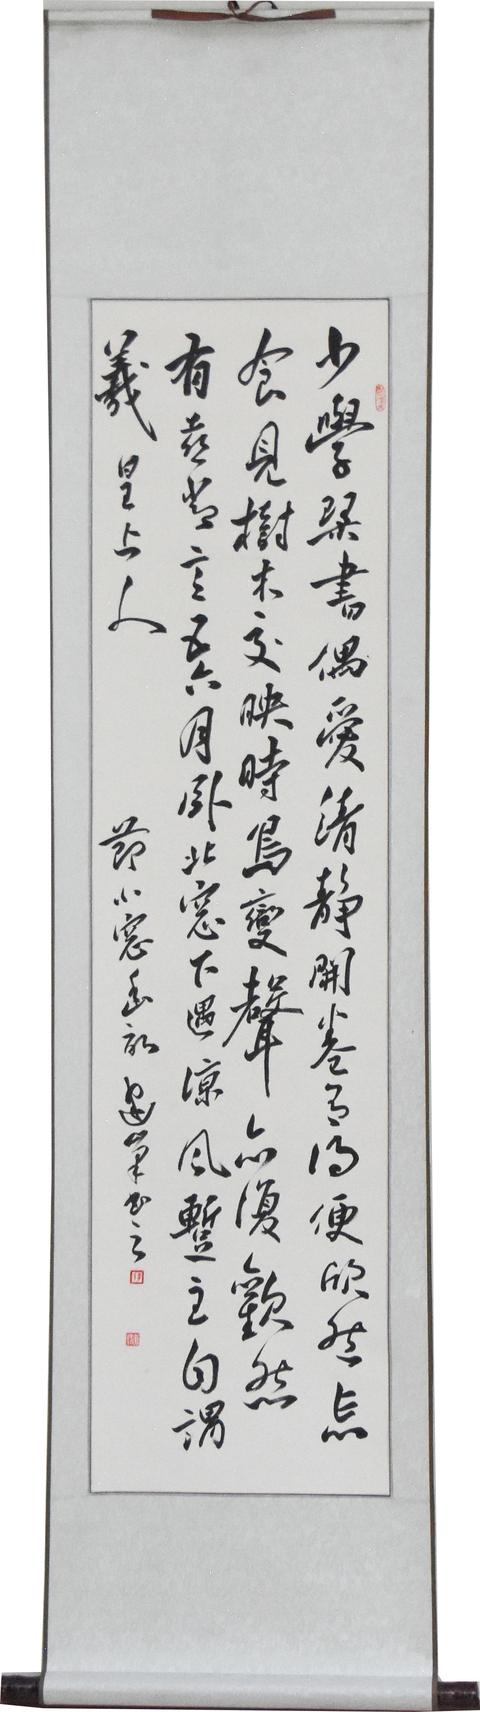 少學琴書偶愛清靜開卷有得便欣然忘
食見樹木交映時鳥變聲亦復歡然
有喜嘗言五六月臥北窓下遇涼風暫至自謂
羲皇上人
節小窓幽記